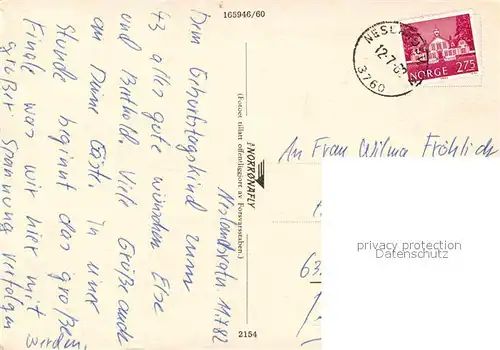 165946/60
Neslandsvatn 11.7.82
Dem Geburtstagskind zum
43 alles gute wünschen Else
und Berthold. Viele Grüße auch
an Deine Gäste. In einer
Stunde beginnt das große
Finale was wir hier mit
großer Spannung verfolgen
werden.
2154
(Fotoet tillatt offentliggjort av Forsvarsstaben.)
NORRØNAFLY
NESLANDSVATN
12.7.82
3760
NORGE 275
An Frau Wilma Fröhlich
63
privacy protection
Datenschutz